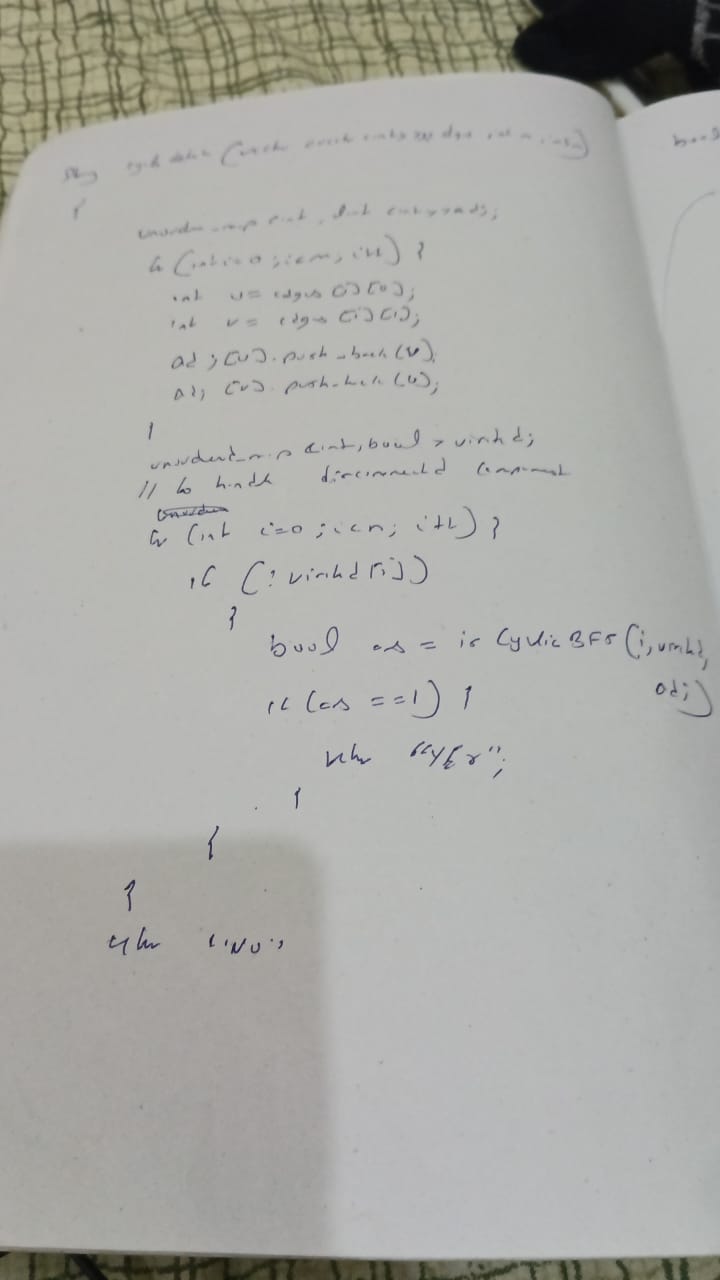 string cycle detection (vector<vector<int>>& edges, int n, int m)
{
unordered_map<int, list<int>> adj;
for (int i=0; i<m; i++) {
int u = edges[i][0];
int v = edges[i][1];
adj[u].push_back(v);
adj[v].push_back(u);
}
unordered_map<int, bool> visited;
// to handle disconnected component
for (int i=0; i<n; i++) {
if (!visited[i])
{
bool ans = isCyclicBFS(i, visited,
adj)
if (ans == 1) {
return "YES";
}
}
}
return "NO";
bool